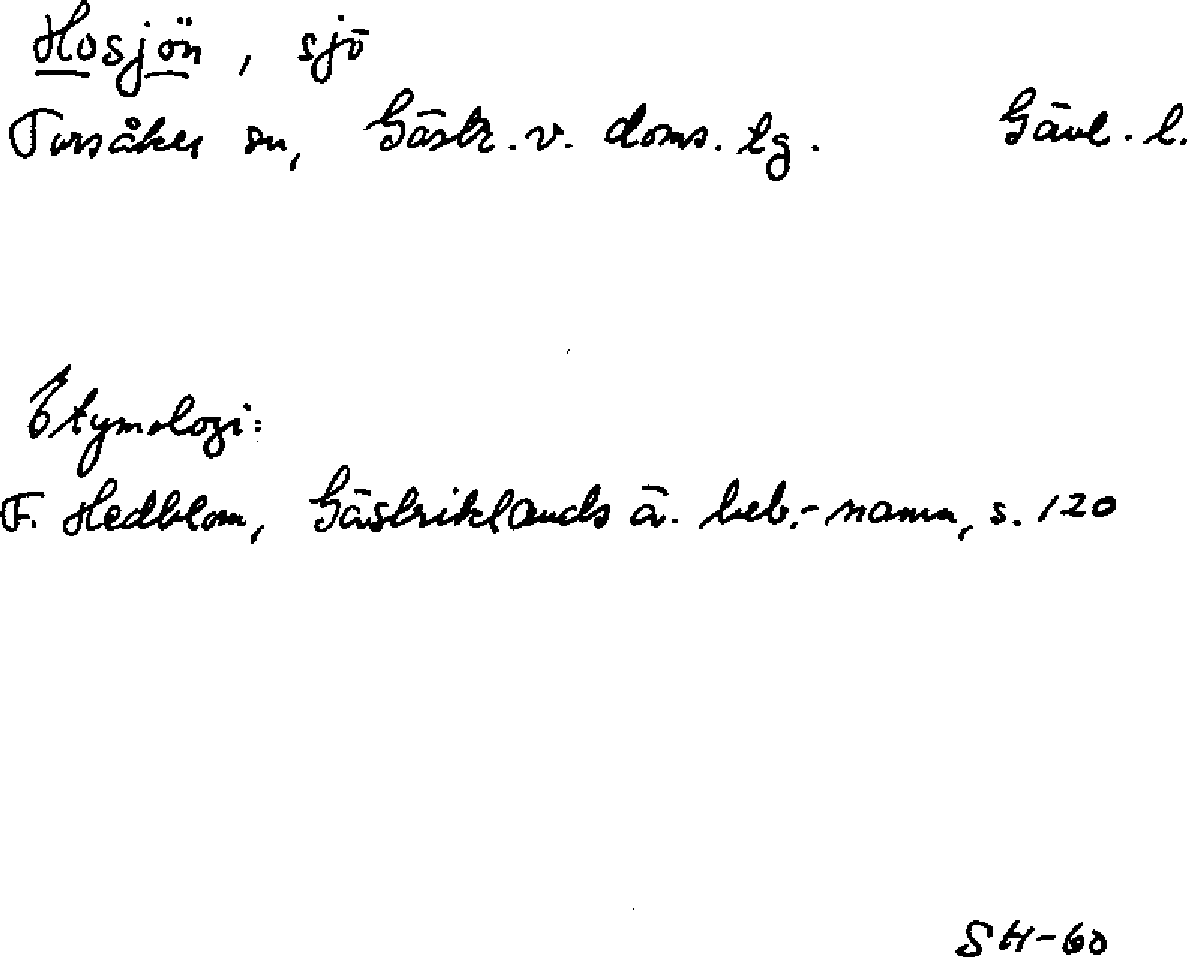 Hosjön, sjö
Torsåker sn, Gästr. v. doms. tg. Gävl. l.
Etymologi:
F. Hedblom, Gästriklands ä. beb.-namn, s. 120
SH-60